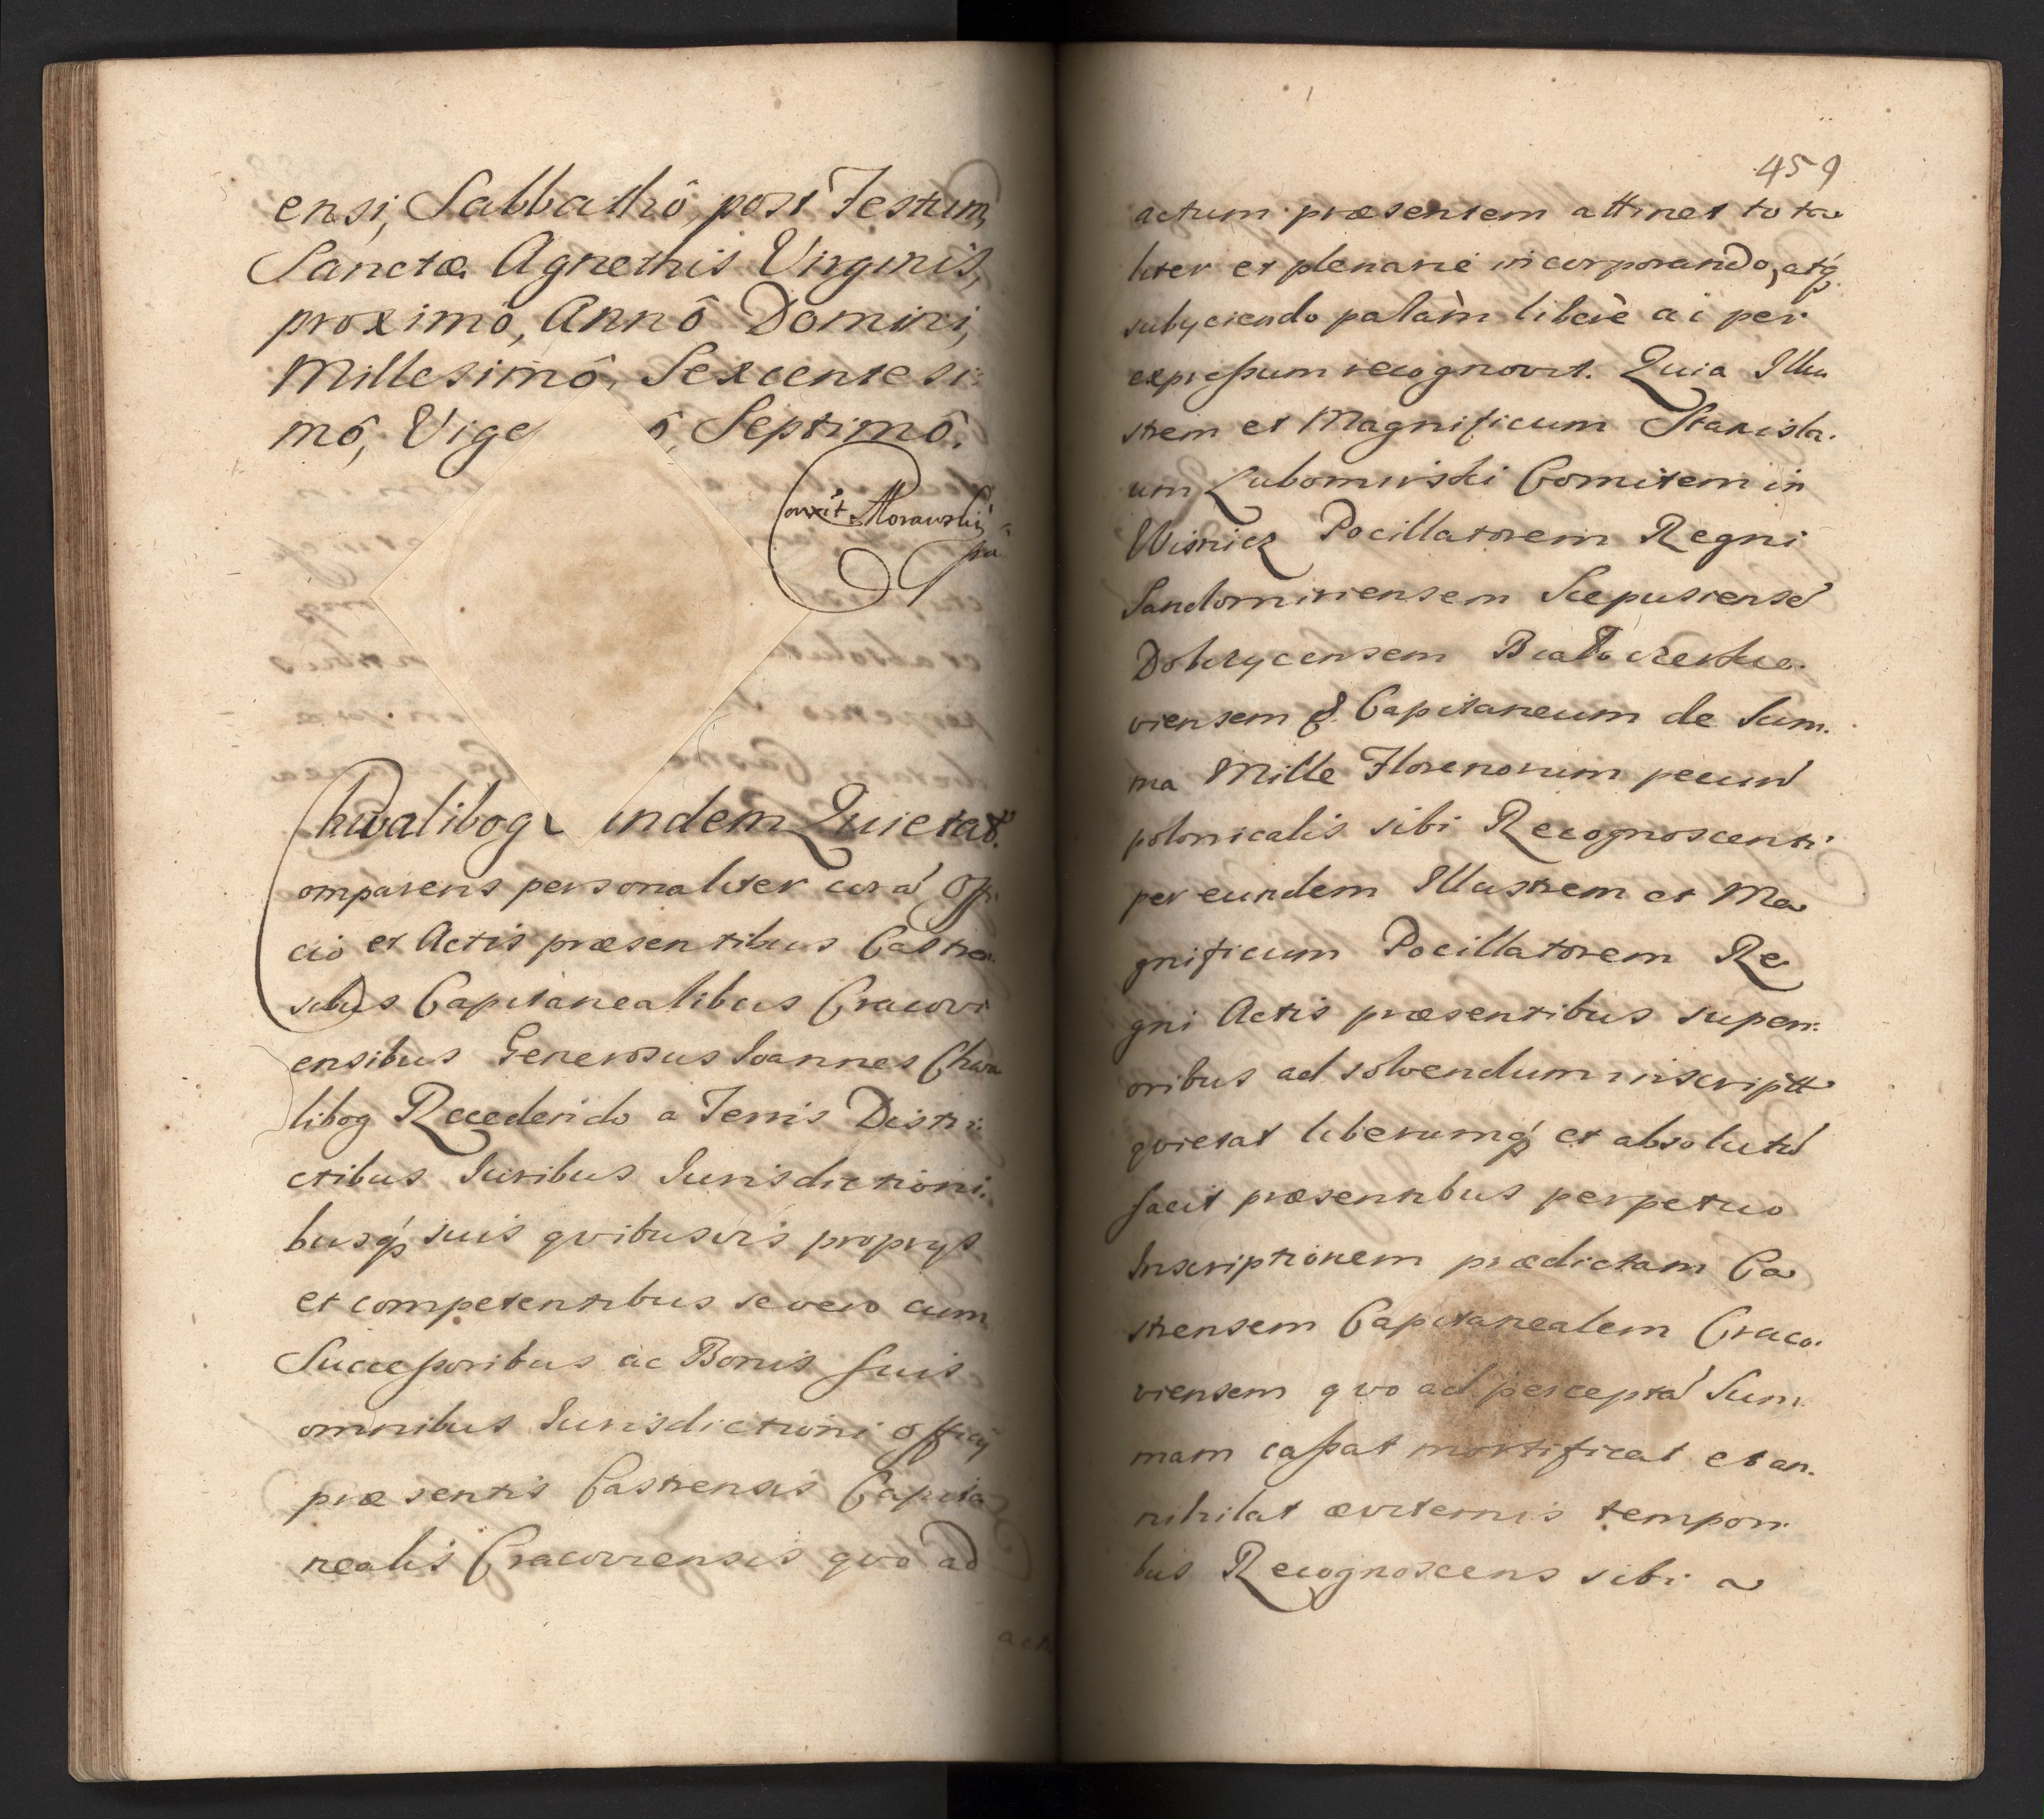 ensi, Sabbathô, post Festum,
Sanctæ Agnethis Virginis,
proximô, Annô Domini,
Millesimô, Sexcentesi:
mô, Vige ô, Septimô.
Corrêxit Morawski
Chwalibog indem Quietat.
omparens personaliter corã Offi
cio et Actis præsentibus Castren
sibus Capitanealibus Cracovi
ensibus Generosus Ioannes Chwa
libog Recedendo a Terris Distri:
ctibus Iuribus Iurisdictioni:
busq́ suis qvibusvis proprys
et competentibus se vero cum
Successoribus ac Bonis suis
omnibus Iurisdictioni Officij
præsentis Castrensis Capita
nealis Cracoviensis qvo ad
459
actum præsentem attinet tota
liter et plenarie incorporando, atq́
subyciendo palàm liberè ac per
expressum recognovit. Quia Illu
strem et Magnificum Stanisla.
um Lubomirski Comitem in
Wisnicz Pocillatorem Regni
Sandomiriensem Scepusiensẽ
Dobczycensem Białocerkie.
viensem &. Capitaneum de Sum.
ma Mille Florenorum pecuniæ
polonicalis sibi Recognoscenti
per eundem Illustrem et Ma
gnificum Pocillatorem Re
gni Actis præsentibus superi:
oribus ad solvendum inscripta
qvietat liberumq́ et absolutũ
facit præsentibus perpetuo
Inscriptionem prædictam Ca
strensem Capitanealem Craco.
viensem qvo ad perceptã Sum
mam cassat mortificat et an.
nihilat æviternis tempori.
bus Recognoscens sibi a